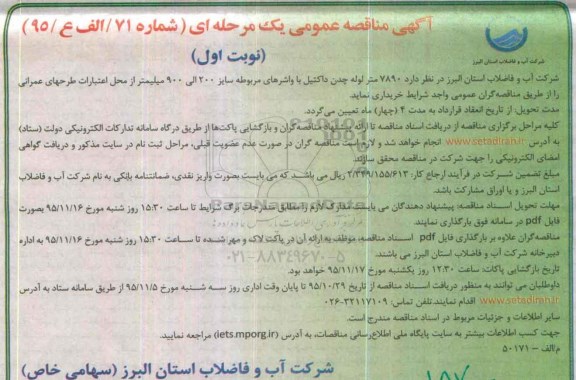 آگهی مناقصه عمومی یک مرحله ای (شماره ۷۱/الف ع/۹۵)
(نوبت اول)
شرکت آب و فاضلاب استان البرز
شرکت آب و فاضلاب استان البرز در نظر دارد ۷۸۹۰ متر لوله چدن داکتیل با واشرهای مربوطه سایز ۲۰۰ الی ۹۰۰ میلیمتر از محل اعتبارات طرحهای عمرانی
را از طریق مناقصه‌گران عمومی واجد شرایط خریداری نماید.
مدت تحویل: از تاریخ انعقاد قرارداد به مدت ۴ (چهار) ماه تعیین می‌گردد.
کلیه مراحل برگزاری مناقصه از دریافت اسناد مناقصه تا ارائه پیشنهاد مناقصه‌گران و بازگشایی پاکت‌ها از طریق درگاه سامانه تدارکات الکترونیکی دولت (ستاد)
به آدرس www.setadiran.ir انجام خواهد شد و لازم است مناقصه گران در صورت عدم عضویت قبلی، مراحل ثبت نام در سایت مذکور و دریافت گواهی
امضای الکترونیکی را جهت شرکت در مناقصه محقق سازند.
مبلغ تضمین شرکت در فرآیند ارجاع کار: ۲/۳۴۹/۱۵۵/۶۱۳ ریال می باشد که می بایست بصورت واریز نقدی، ضمانتنامه بانکی به نام شرکت آب و فاضلاب
استان البرز و یا اوراق مشارکت باشد.
مهلت تحویل اسناد مناقصه: پیشنهاد دهندگان می بایست مدارک لازم را مطابق مندرجات برگ شرایط تا ساعت ۱۵:۳۰ روز شنبه مورخ ۹۵/۱۱/۱۶ بصورت
فایل pdf در سامانه فوق بارگذاری نمایند.
مناقصه‌گران علاوه بر بارگذاری فایل pdf اسناد مناقصه، موظف به ارائه آن در پاکت لاک و مهر شده تا ساعت ۱۵:۳۰ روز شنبه مورخ ۹۵/۱۱/۱۶ به اداره
دبیرخانه شرکت آب و فاضلاب استان البرز می باشند.
۰۲۱-۸۸۳۴۹۶۷۰-۵
تاریخ بازگشایی پاکات: ساعت ۱۲:۳۰ روز یکشنبه مورخ ۹۵/۱۱/۱۷ خواهد بود.
داوطلبان می توانند به منظور دریافت اسناد مناقصه از تاریخ ۹۵/۱۰/۲۹ تا پایان وقت اداری روز سه شنبه مورخ ۹۵/۱۱/۵ از طریق سامانه ستاد به آدرس
www.setadiran.ir اقدام نمایند. تلفن تماس: ۳۲۱۱۷۱۰۹-۰۲۶
سایر اطلاعات و جزئیات مربوط در اسناد مناقصه مندرج است.
جهت کسب اطلاعات بیشتر به سایت پایگاه ملی اطلاع‌رسانی مناقصات، به آدرس (iets.mporg.ir) مراجعه نمایید.
م/الف – ۵۰۱۷۱
شرکت آب و فاضلاب استان البرز (سهامی خاص)